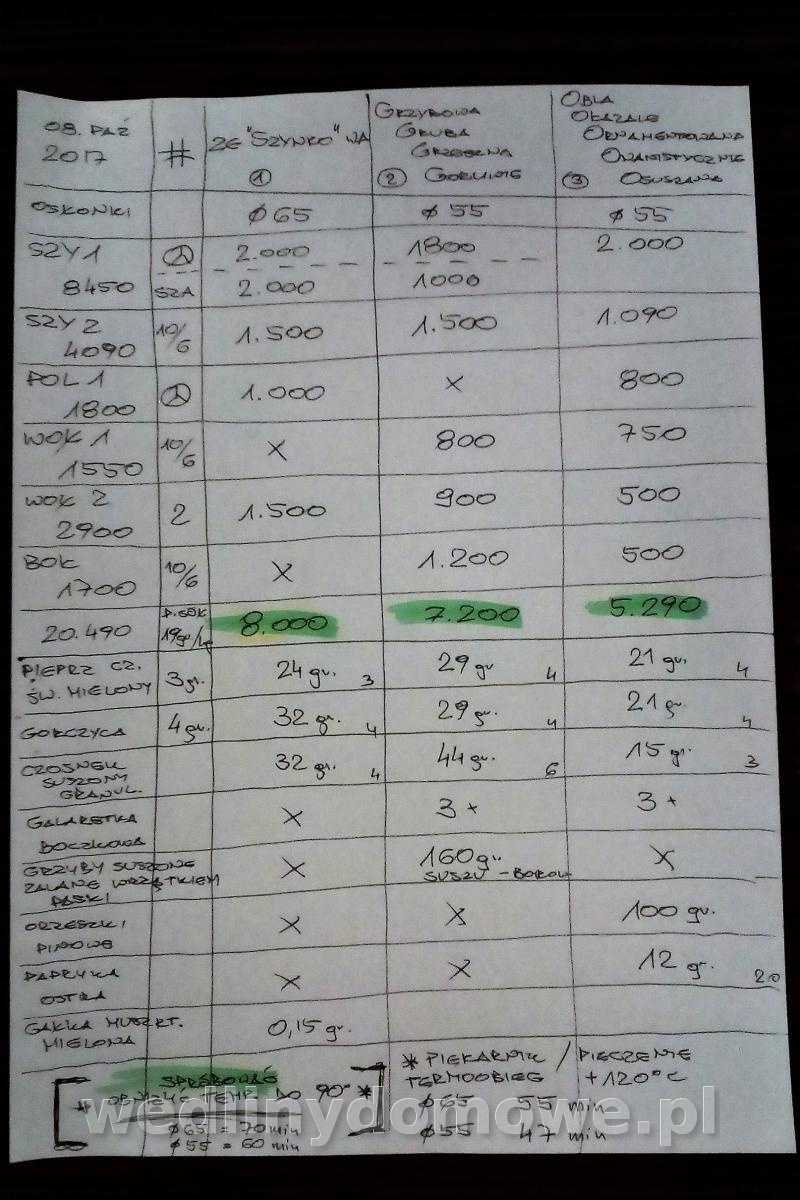 08. PAŹ 2017 # ZE "SZYNKO" WA ① GRZYBOWA GRUBA GRZESZNA ② GORLIWIE OBLA OKAZALE ORNAMENTOWANA ONANISTYCZNIE ③ OSUSZANA
OSKONKI ø 65 ø 55 ø 55
SZY 1 2.000 1800 2.000
8450 SZA 2.000 1000
SZY 2 4090 10/6 1.500 1.500 1.090
POL 1 1800 1.000 X 800
WOŁ 1 1550 10/6 X 800 750
WOŁ 2 2900 2 1.500 900 500
BOK 1700 10/6 X 1.200 500
20.490 19gr/kg 8.000 7.200 5.290
PIEPRZ CZ. ŚW. MIELONY 3 gr. 24 gr. 3 29 gr 4 21 gr. 4
GORCZYCA 4 gr. 32 gr. 4 29 gr. 4 21 gr. 4
CZOSNEK SUSZONY GRANUL. 32 gr. 4 44 gr. 6 15 gr. 3
GALARETKA BOCZKOWA X 3 + 3 +
GRZYBY SUSZONE ZALANE WRZĄTKIEM PASKI X 160 gr. SUSZU - BOROW X
ORZESZKI PINIOWE X X 100 gr.
PAPRYKA OSTRA X X 12 gr. 2.0
GAŁKA MUSZKT. MIELONA 0,15 gr.
SPRÓBOWAĆ
* OBNIŻYĆ TEMP. DO 90° *
ø 65 = 70 min
ø 55 = 60 min
* PIEKARNIK / PIECZENIE
TERMOOBIEG +120°C
ø 65 55 min
ø 55 47 min
wedlinydomowe.pl